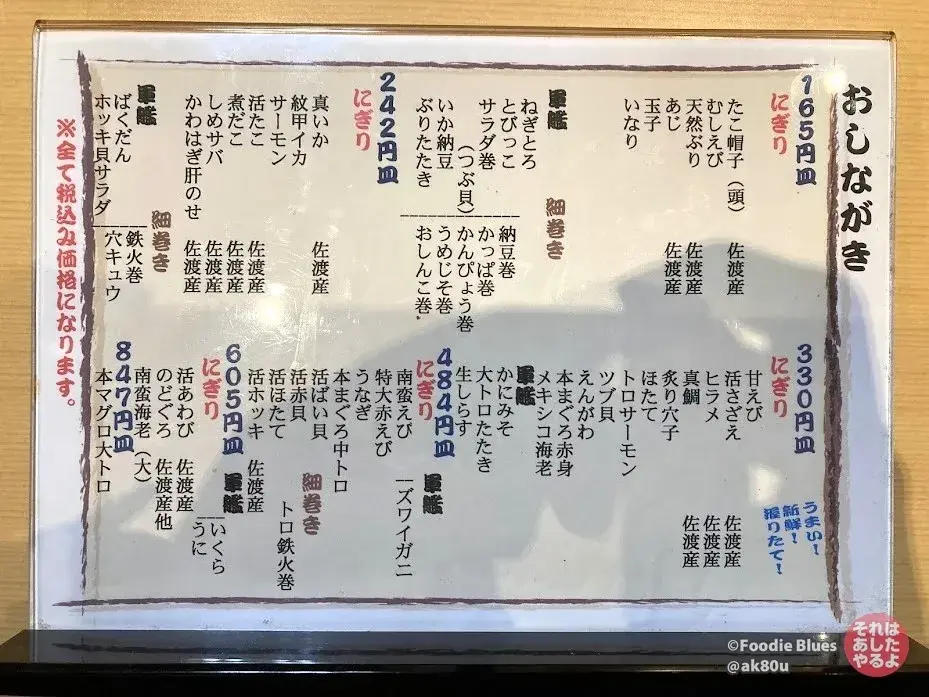 おしながき
165円皿
にぎり
たこ帽子（頭） 佐渡産
むしえび
天然ぶり 佐渡産
あじ 佐渡産
玉子
いなり
軍艦
ねぎとろ
とびっこ
サラダ巻
（つぶ貝）
いか納豆
ぶりたたき
細巻き
納豆巻
かっぱ巻
かんぴょう巻
うめじそ巻
おしんこ巻
242円皿
にぎり
真いか 佐渡産
紋甲イカ
サーモン
活たこ 佐渡産
煮だこ 佐渡産
しめサバ 佐渡産
かわはぎ肝のせ 佐渡産
軍艦
ばくだん
ホッキ貝サラダ
細巻き
鉄火巻
穴キュウ
330円皿
にぎり
甘えび
活さざえ 佐渡産
ヒラメ 佐渡産
真鯛 佐渡産
炙り穴子
ほたて
トロサーモン
ツブ貝
えんがわ
本まぐろ赤身
メキシコ海老
軍艦
かにみそ
大トロたたき
生しらす
うまい！
新鮮！
握りたて！
484円皿
にぎり
南蛮えび
特大赤えび
うなぎ
本まぐろ中トロ
活ばい貝
活赤貝
活ほたて
活ホッキ 佐渡産
軍艦
ズワイガニ
細巻き
トロ鉄火巻
605円皿
にぎり
活あわび 佐渡産
のどぐろ 佐渡産他
南蛮海老（大）
軍艦
いくら
うに
847円皿
本マグロ大トロ
※全て税込み価格になります。
©Foodie Blues
@ak80u
それは
あした
やるよ